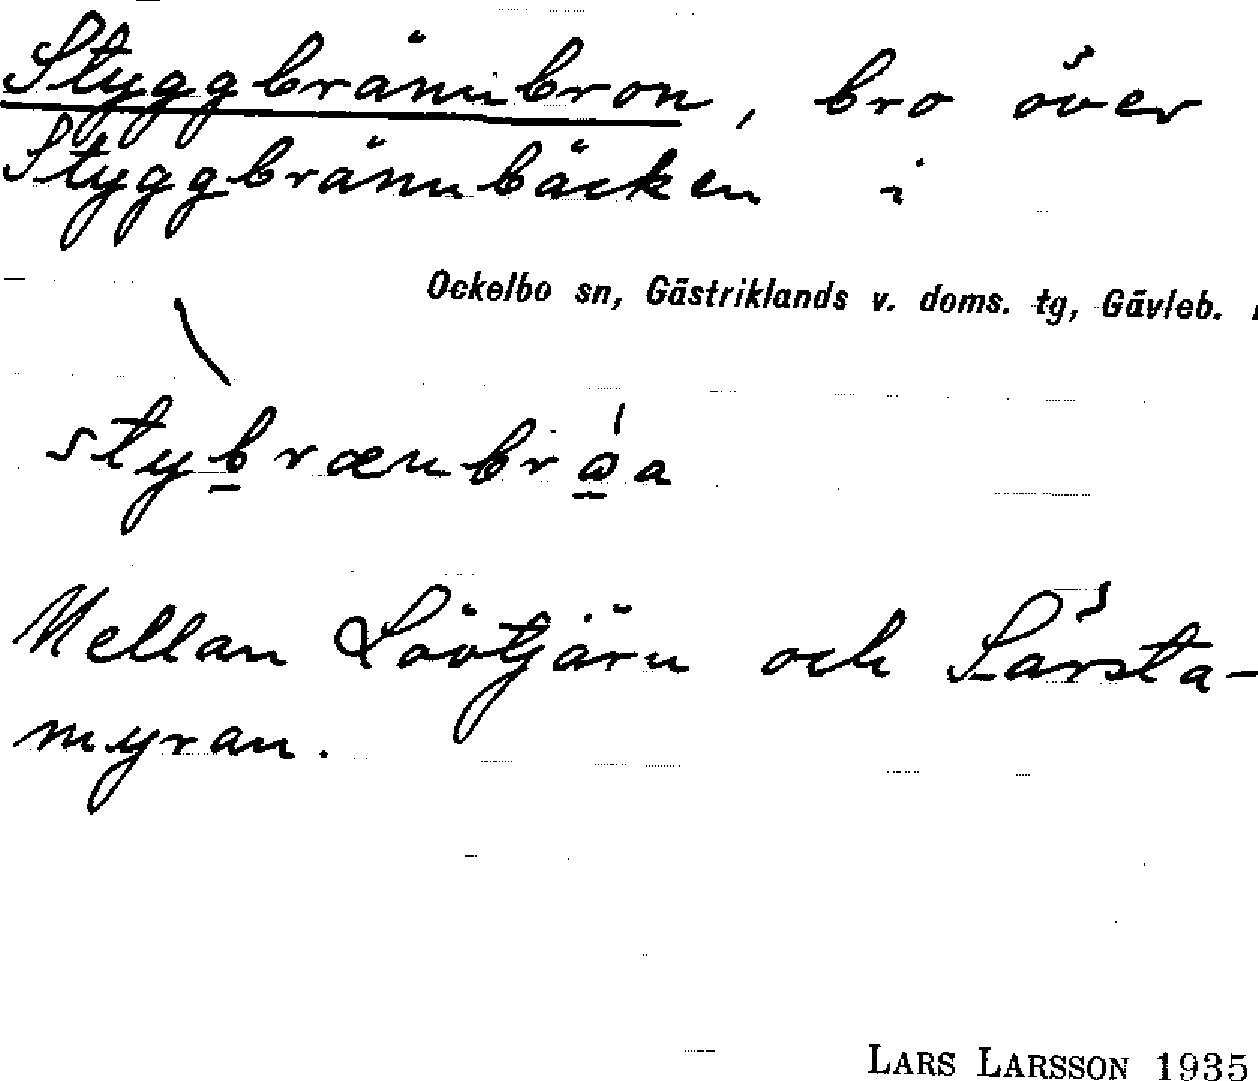 Styggbrännbron, bro över
Styggbrännbäcken i
Ockelbo sn, Gästriklands v. doms. tg, Gävleb.
stybrænbrǿa
Mellan Lövtjärn och Lörsta-
myran.
LARS LARSSON 1935